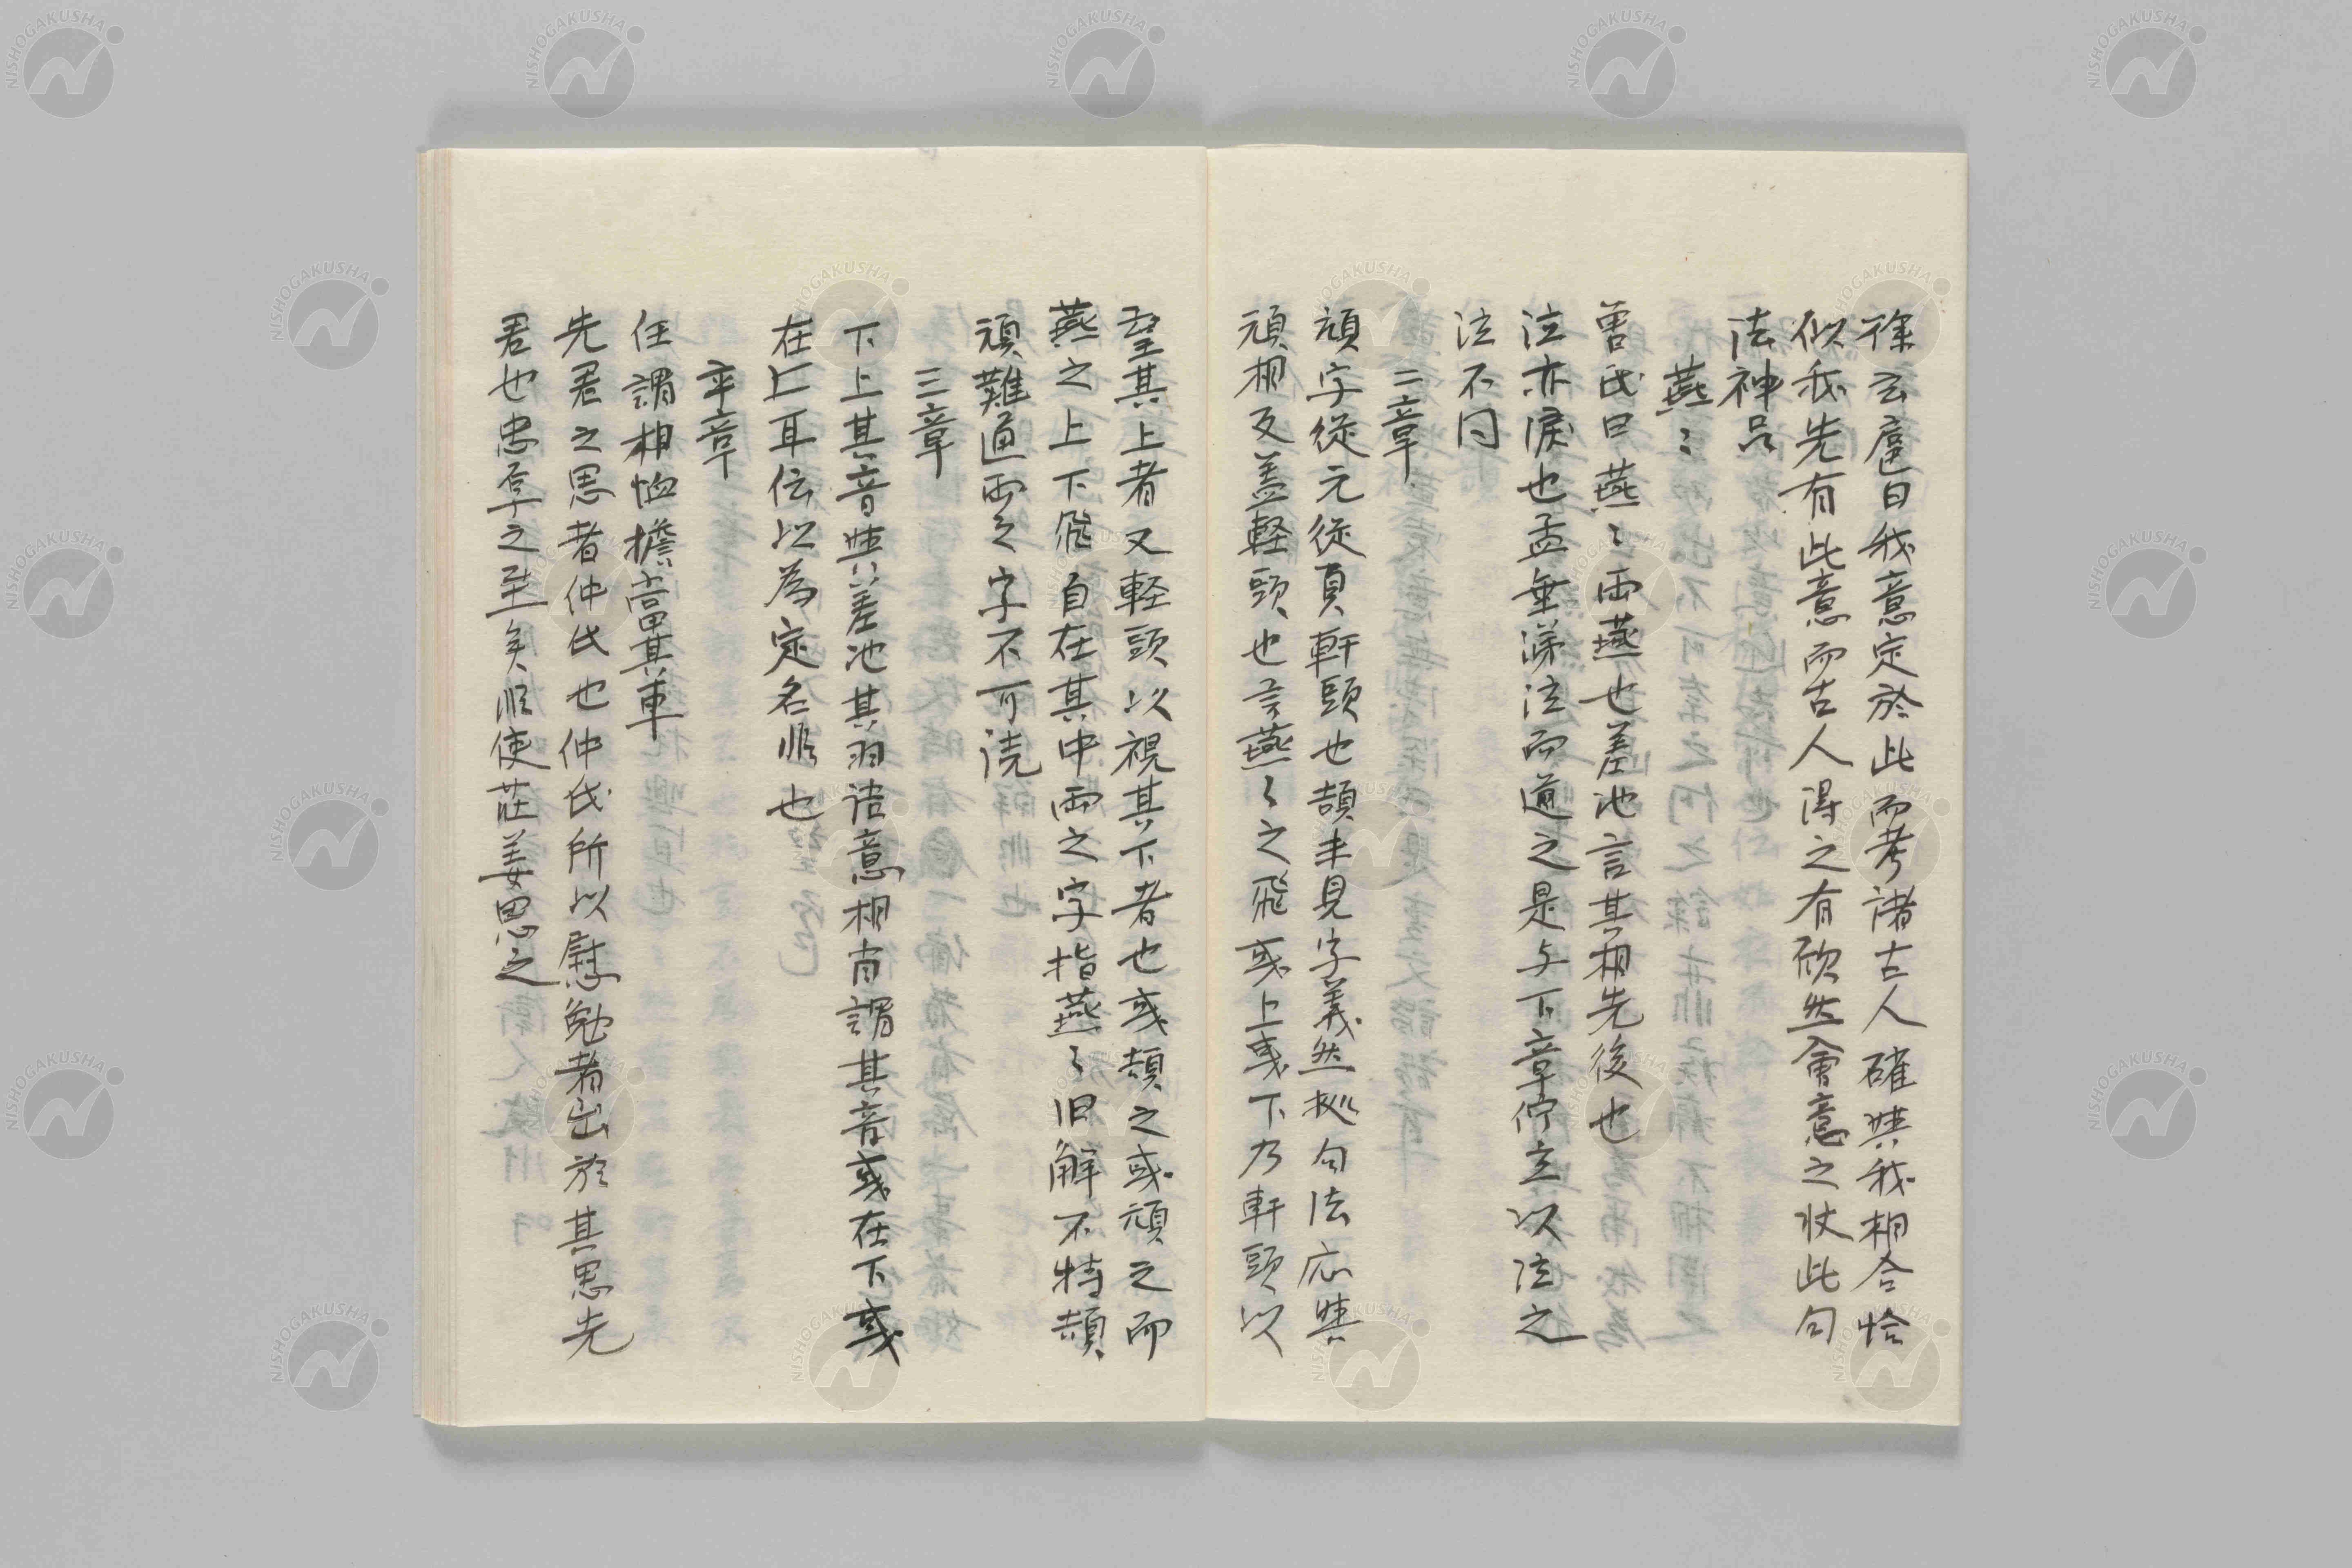 徐玄扈曰我意定於此而考諸古人確與我相合恰
似我先有此意而古人得之有欣然會意之状此句
法神品
燕〻
曽氏曰燕〻両燕也差池言其相先後也
泣亦涙也孟垂涕泣而道之是与下章佇立以泣之
泣不同
二章
頏字從亢從頁軒頭也頡未見字義然拠句法応與
頏相反蓋軽頭也言燕〻之飛或上或下乃軒頭以
望其上者又軽頭以視其下者也或頡之或頏之而
燕之上下飛自在其中両之字指燕〻旧解不特頡
頏難通両之字不可読
三章
下上其音與差池其羽語意相肖謂其音或在下或
在上耳伝以為定名非也
卒章
任謂相恤擔當其事
先君之思者仲氏也仲氏所以慰勉者出於其思先
君也忠厚之至矣非使荘姜思之
NISHOGAKUSHA